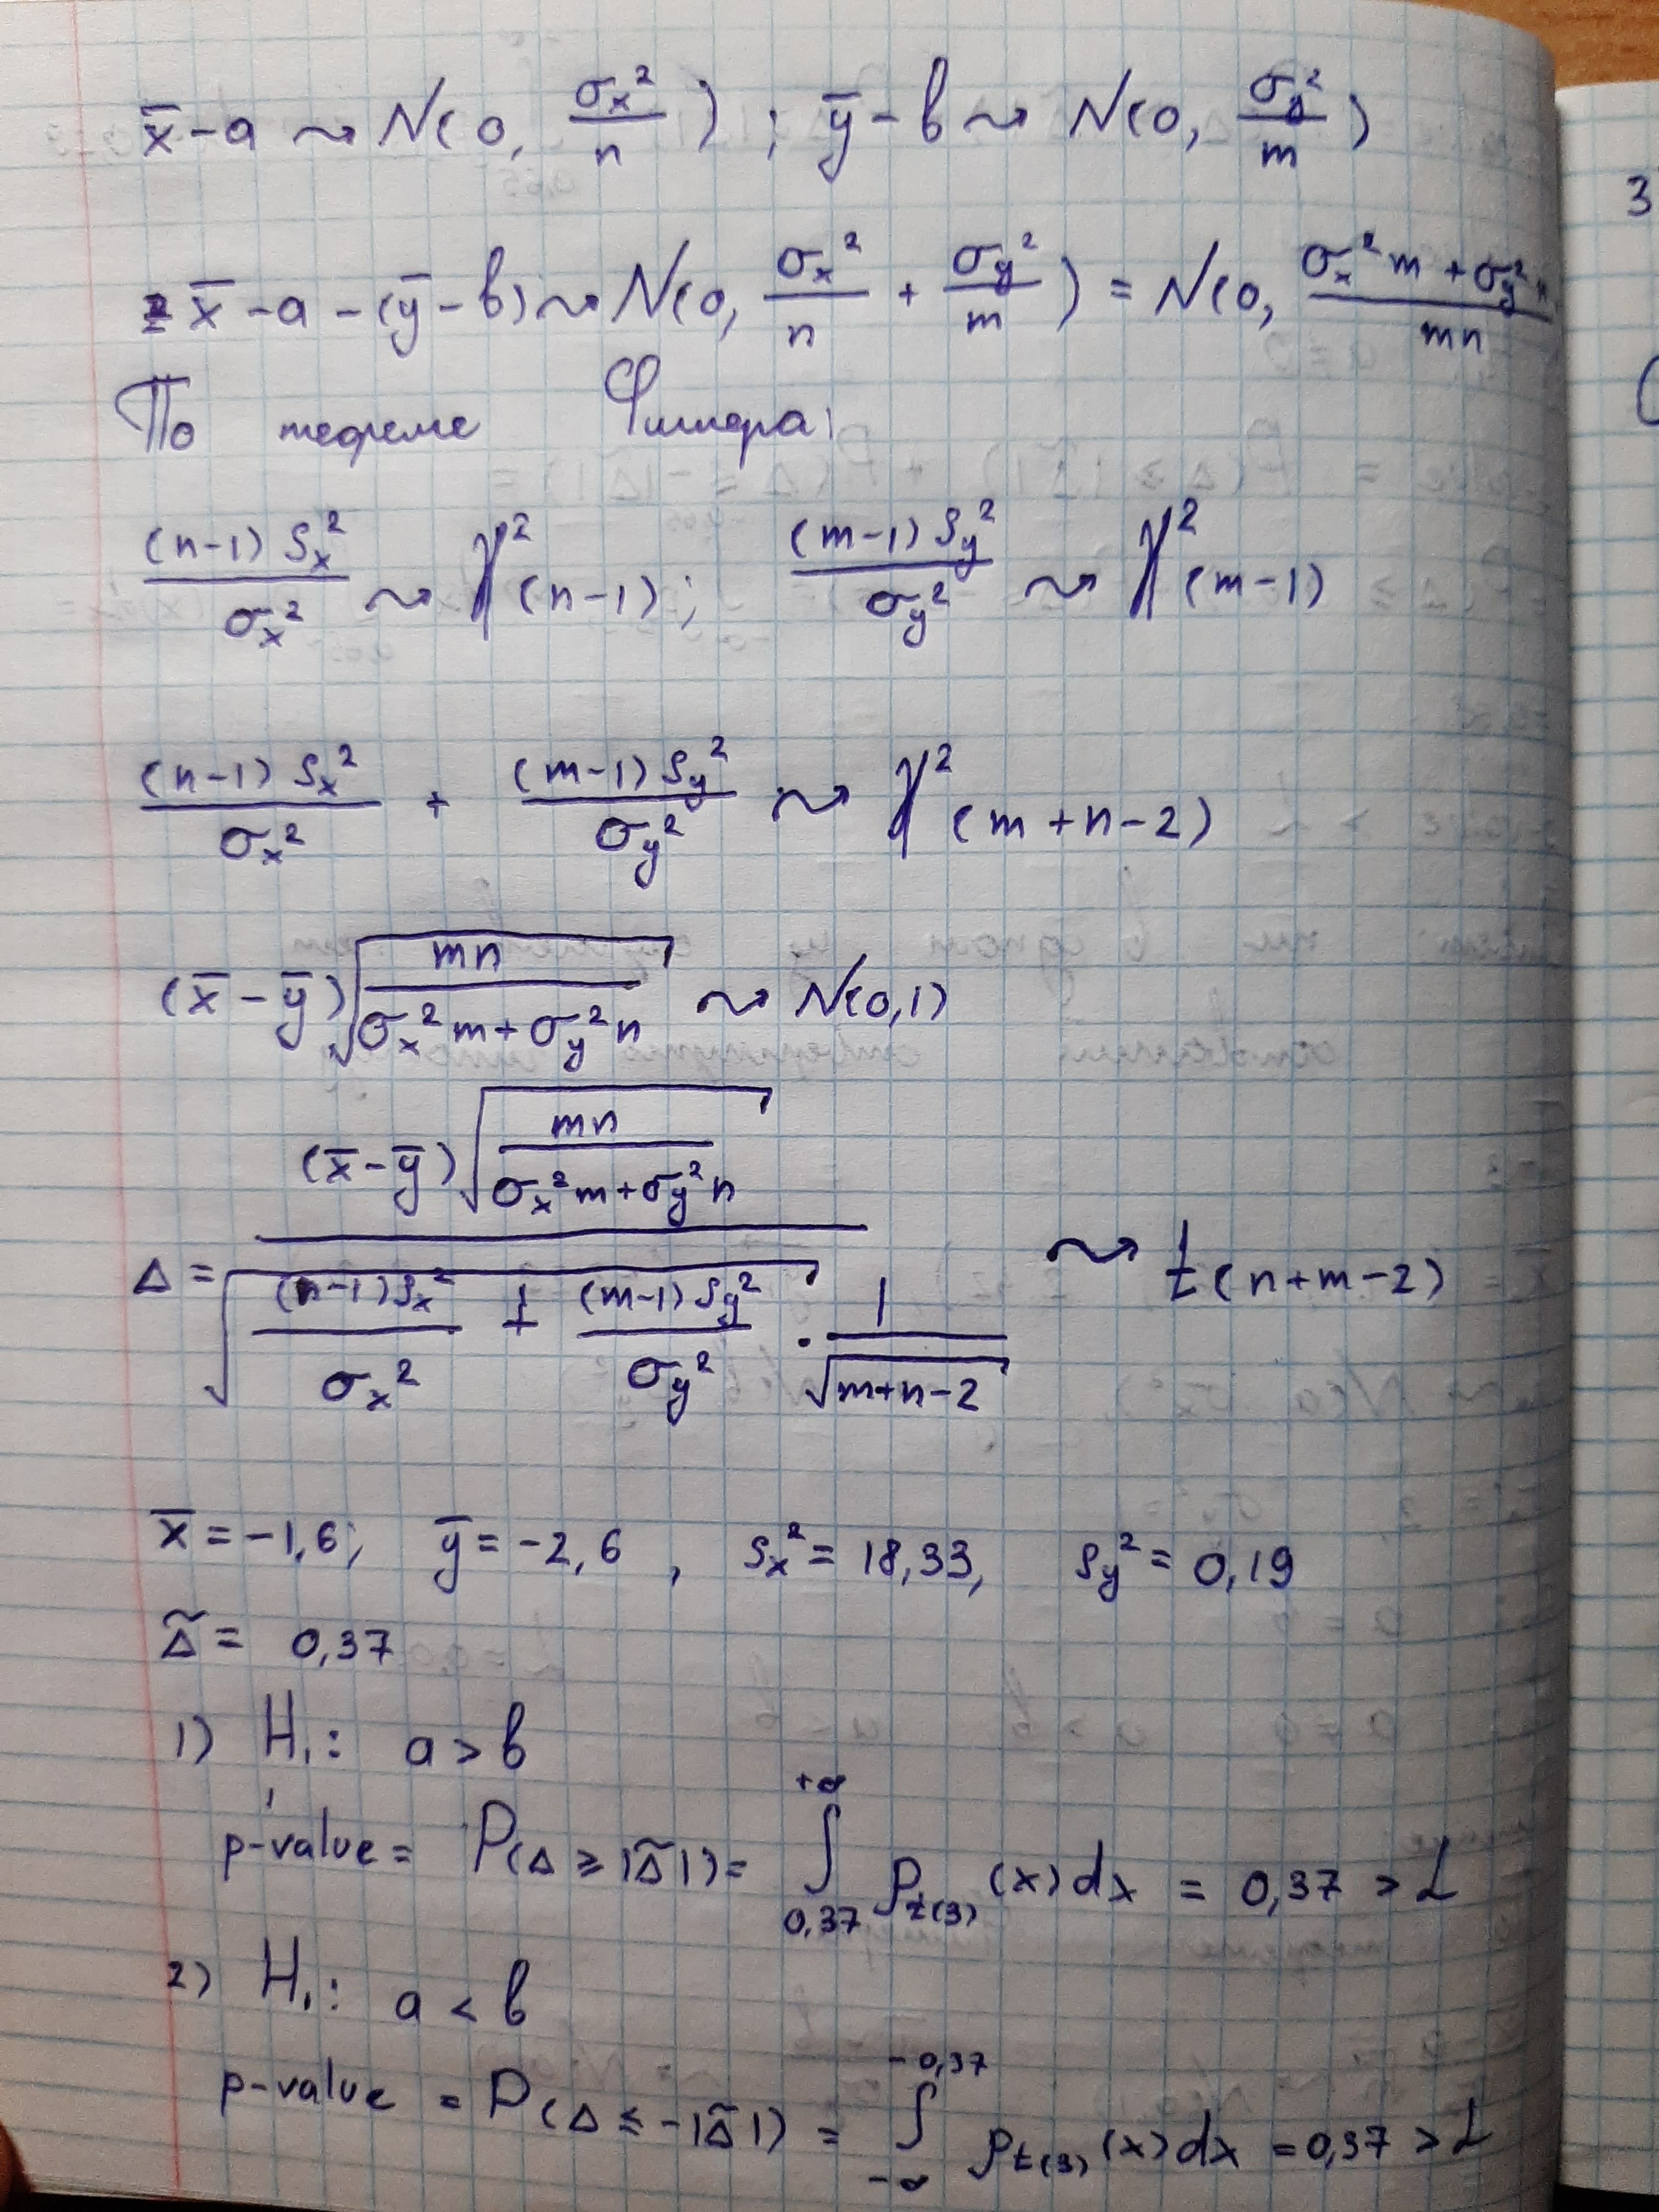 x̄ - a ⇝ N(0, σₓ²/n) ; ȳ - b ⇝ N(0, σ_y²/m)
x̄ - a - (ȳ - b) ⇝ N(0, σₓ²/n + σ_y²/m) = N(0, (σₓ²m + σ_y²n)/mn)
По теореме Фишера:
(n-1)Sₓ²/σₓ² ⇝ χ²(n-1); (m-1)S_y²/σ_y² ⇝ χ²(m-1)
(n-1)Sₓ²/σₓ² + (m-1)S_y²/σ_y² ⇝ χ²(m+n-2)
(x̄ - ȳ)√(mn/(σₓ²m + σ_y²n)) ⇝ N(0,1)
Δ = (x̄ - ȳ)√(mn/(σₓ²m + σ_y²n)) / (√((n-1)Sₓ²/σₓ² + (m-1)S_y²/σ_y²) · 1/√(m+n-2)) ⇝ t(n+m-2)
x̄ = -1,6; ȳ = -2,6 , Sₓ² = 18,33, S_y² = 0,19
Δ̃ = 0,37
1) H₁: a > b
p-value = P(Δ ≥ |Δ̃|) = ∫_{0,37}^{+∞} ρ_{t(3)}(x)dx = 0,37 > α
2) H₁: a < b
p-value = P(Δ ≤ -|Δ̃|) = ∫_{-∞}^{-0,37} ρ_{t(3)}(x)dx = 0,37 > α
3